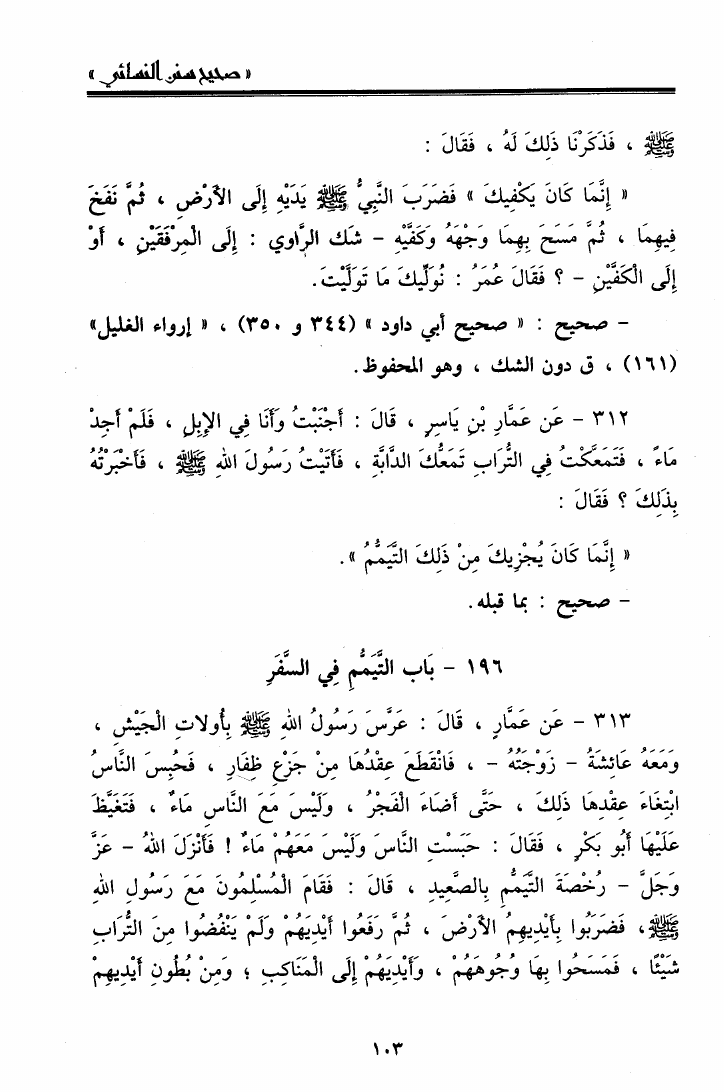 « صحيح سنن النسائي »
ﷺ ، فَذَكَرْنَا ذَلِكَ لَهُ ، فَقَالَ :
« إِنَّمَا كَانَ يَكْفِيكَ » فَضَرَبَ النَّبِيُّ ﷺ يَدَيْهِ إِلَى الأَرْضِ ، ثُمَّ نَفَخَ
فِيهِمَا ، ثُمَّ مَسَحَ بِهِمَا وَجْهَهُ وَكَفَّيْهِ – شَك الرَّاوي : إِلَى الْمِرْفَقَيْنِ ، أَوْ
إِلَى الْكَفَّيْنِ – ؟ فَقَالَ عُمَرُ : نُوَلِّيكَ مَا تَوَلَّيْتَ.
– صحيح : « صحيح أبي داود » (٣٤٤ و ٣٥٠) ، « إرواء الغليل»
(١٦١) ، ق دون الشك ، وهو المحفوظ.
٣١٢ – عَن عَمَّارِ بْنِ يَاسِرٍ ، قَالَ : أَجْنَبْتُ وَأَنَا فِي الإِبِلِ ، فَلَمْ أَجِدْ
مَاءً ، فَتَمَعَّكْتُ فِي التُّرَابِ تَمَعُّكَ الدَّابَّةِ ، فَأَتَيْتُ رَسُولَ اللهِ ﷺ ، فَأَخْبَرْتُهُ
بِذَلِكَ ؟ فَقَالَ :
« إِنَّمَا كَانَ يُجْزِيكَ مِنْ ذَلِكَ التَّيَمُّمُ ».
– صحيح : بما قبله.
١٩٦ – بَاب التَّيَمُّمِ فِي السَّفَرِ
٣١٣ – عَن عَمَّارٍ ، قَالَ : عَرَّسَ رَسُولُ اللهِ ﷺ بِأُولَاتِ الْجَيْشِ ،
وَمَعَهُ عَائِشَةُ – زَوْجَتُهُ – ، فَانْقَطَعَ عِقْدُهَا مِنْ جَزْعِ ظِفَارِ ، فَحُبِسَ النَّاسُ
ابْتِغَاءَ عِقْدِهَا ذَلِكَ ، حَتَّى أَضَاءَ الْفَجْرُ ، وَلَيْسَ مَعَ النَّاسِ مَاءٌ ، فَتَغَيَّظَ
عَلَيْهَا أَبُو بَكْرٍ ، فَقَالَ : حَبَسْتِ النَّاسَ وَلَيْسَ مَعَهُمْ مَاءٌ ! فَأَنْزَلَ اللهُ – عَزَّ
وَجَلَّ – رُخْصَةَ التَّيَمُّمِ بِالصَّعِيدِ ، قَالَ : فَقَامَ الْمُسْلِمُونَ مَعَ رَسُولِ اللهِ
ﷺ، فَضَرَبُوا بِأَيْدِيهِمُ الأَرْضَ ، ثُمَّ رَفَعُوا أَيْدِيَهُمْ وَلَمْ يَنْفُضُوا مِنَ التُّرَابِ
شَيْئًا ، فَمَسَحُوا بِهَا وُجُوهَهُمْ ، وَأَيْدِيَهُمْ إِلَى الْمَنَاكِبِ ؛ وَمِنْ بُطُونِ أَيْدِيهِمْ
١٠٣